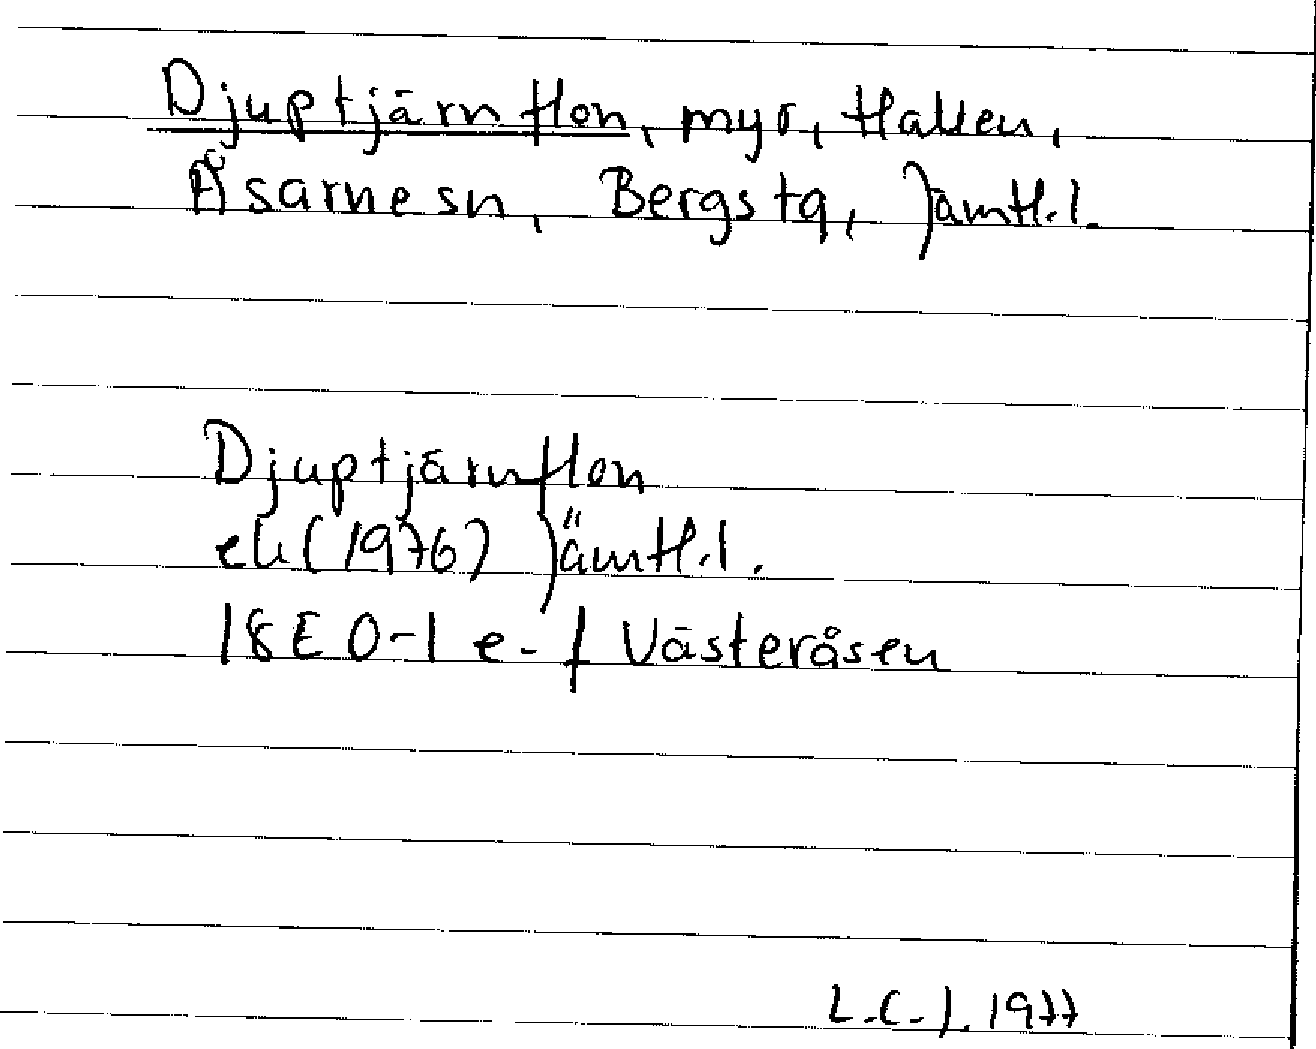 Djuptjärnflon, myr, Hallen,
Åsarne sn, Bergs tg, Jämtl.l.
Djuptjärnflon
ek (1976) Jämtl.l.
18E 0-1 e-f Västeråsen
L.C.J. 1977